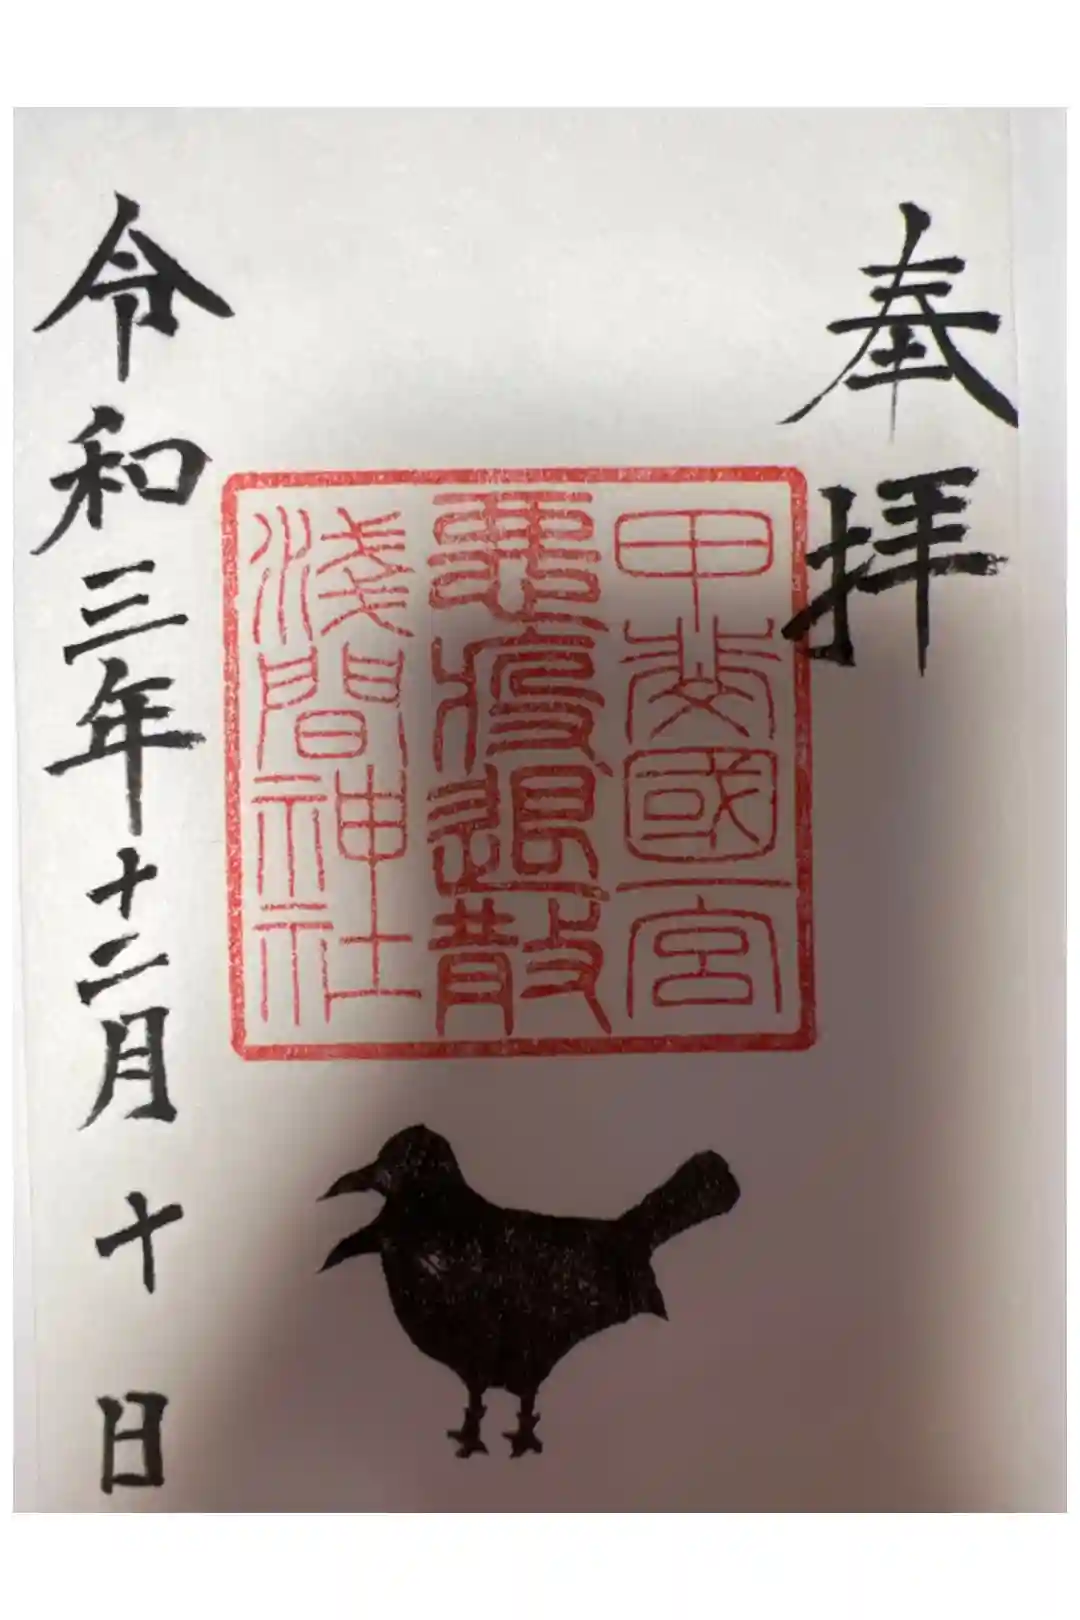 奉拝
甲斐國一宮
悪疫退散
淺間神社
令和三年十二月十日